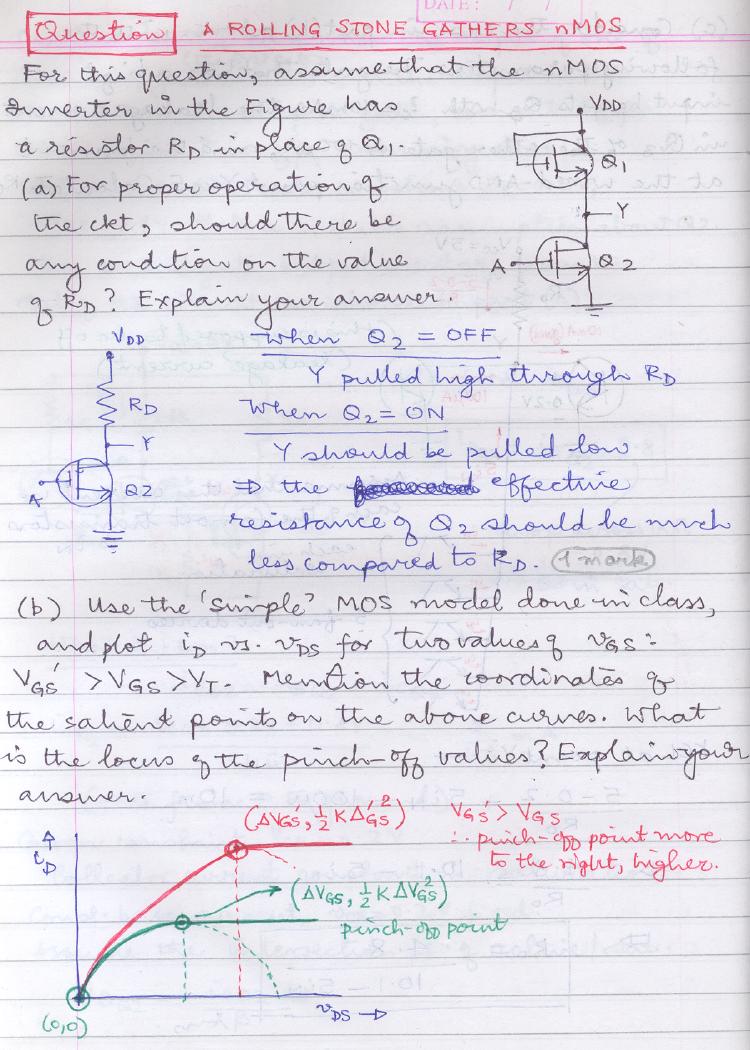 DATE: / /
Question A ROLLING STONE GATHERS nMOS
For this question, assume that the nMOS
Inverter in the Figure has
a resistor RD in place of Q1.
(a) For proper operation of
the ckt, should there be
any condition on the value
of RD? Explain your answer.
VDD
Q1
Y
A
Q2
VDD
RD
Y
A
Q2
When Q2 = OFF
Y pulled high through RD
When Q2 = ON
Y should be pulled low
⇒ the effective
resistance of Q2 should be much
less compared to RD. (1 mark)
(b) Use the 'simple' MOS model done in class,
and plot iD vs. vDS for two values of vGS:
VGS' > VGS > VT. Mention the coordinates of
the salient points on the above curves. What
is the locus of the pinch-off values? Explain your
answer.
(ΔVGS', ½ K Δ'GS²)
VGS' > VGS
∴ pinch-off point more
to the right, higher.
iD
(ΔVGS, ½ K ΔVGS²)
pinch-off point
(0,0)
vDS →